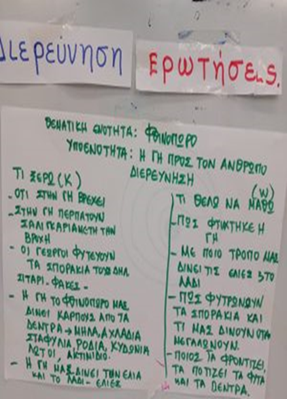 Διερεύνηση
Ερωτήσεις.
ΘΕΜΑΤΙΚΗ ΕΝΟΤΗΤΑ: ΦΘΙΝΟΠΩΡΟ
ΥΠΟΕΝΟΤΗΤΑ: Η ΓΗ ΠΡΟΣ ΤΟΝ ΑΝΘΡΩΠΟ
ΔΙΕΡΕΥΝΗΣΗ
ΤΙ ΞΕΡΩ (Κ)
- ΟΤΙ ΣΤΗΝ ΓΗ ΒΡΕΧΕΙ
- ΣΤΗΝ ΓΗ ΠΕΡΠΑΤΟΥΝ
ΣΑΛΙΓΚΑΡΙΑ ΜΕΤΑ ΤΗΝ
ΒΡΟΧΗ
- ΟΙ ΓΕΩΡΓΟΙ ΦΥΤΕΥΟΥΝ
ΤΑ ΣΠΟΡΑΚΙΑ ΤΟΥΣ ΔΗΛ
ΣΙΤΑΡΙ - ΦΑΚΕΣ -
- Η ΓΗ ΤΟ ΦΘΙΝΟΠΩΡΟ ΜΑΣ
ΔΙΝΕΙ ΚΑΡΠΟΥΣ ΑΠΟ ΤΑ
ΔΕΝΤΡΑ → ΜΗΛΑ, ΑΧΛΑΔΙΑ
ΣΤΑΦΥΛΙΑ, ΡΟΔΙΑ, ΚΥΔΩΝΙΑ
ΛΩΤΟΙ, ΑΚΤΙΝΙΔΙΟ.
- Η ΓΗ ΜΑΣ ΔΙΝΕΙ ΤΗΝ ΕΛΙΑ
ΚΑΙ ΤΟ ΛΑΔΙ - ΕΛΙΕΣ
(W)
ΤΙ ΘΕΛΩ ΝΑ ΜΑΘΩ
- ΠΩΣ ΦΤΙΚΤΗΚΕ Η
ΓΗ
- ΜΕ ΠΟΙΟ ΤΡΟΠΟ ΜΑΣ
ΔΙΝΕΙ ΤΙΣ ΕΛΙΕΣ ΣΤΟ
ΛΑΔΙ
- ΠΩΣ ΦΥΤΡΩΝΟΥΝ
ΤΑ ΣΠΟΡΑΚΙΑ ΚΑΙ
ΤΙ ΜΑΣ ΔΙΝΟΥΝ ΟΤΑΝ
ΜΕΓΑΛΩΝΟΥΝ.
- ΠΟΙΟΣ ΤΑ ΦΡΟΝΤΙΖΕΙ,
ΤΑ ΠΟΤΙΖΕΙ ΤΑ ΦΥΤΑ
ΚΑΙ ΤΑ ΔΕΝΤΡΑ.